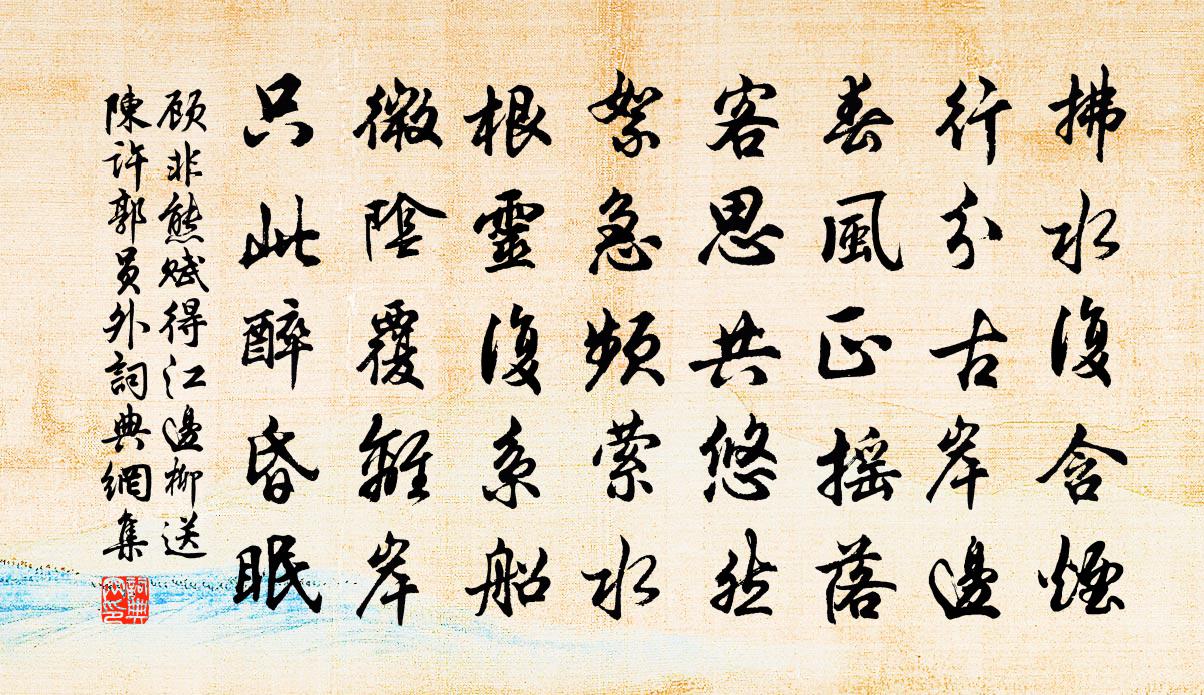 拂水復含煙
行分古岸邊
春風正搖落
客思共悠然
絮急頻縈水
根靈復系船
微陰覆離岸
只此醉昏眠
顧非熊賦得江邊柳送
陳許郭員外詞典網集